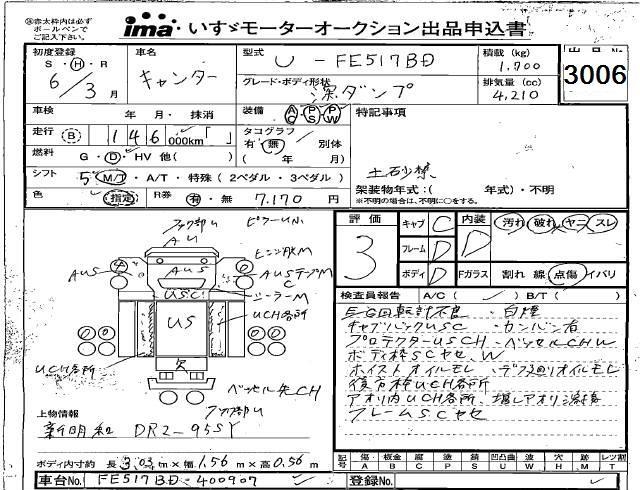 ※赤太枠内は必ず
ボールペンで
ご記入下さい。
ima いすゞモーターオークション出品申込書
初度登録
S・H・R
6年3月
車名
キャンター
型式
U-FE517BD
積載 (kg)
1,700
出品No
3006
グレード・ボディ形状
深ダンプ
排気量 (cc)
4,210
車検 年・月・抹消
装備 AC PS PW
特記事項
土砂禁
走行 B 146,000km「 」
タコグラフ
有・無 別体
( 年 月)
燃料 G・D・HV 他( )
シフト 5 M/T・A/T・特殊 ( 2ペダル・3ペダル )
架装物年式:( 年式)・不明
※不明の場合は、不明に○をする。
色 指定 R券 有・無 7,170円
フック部U ピラーUN
AU
AUS
AUS
ヒーニング爪M
AUSテープM
C
シーラーM
USC
UCH各所
US
UCH各所
欠
ベッセル矢CH
フック部U
評価
3
キャブ C
フレーム D
ボディ D
内装 D
汚れ 破れ ヤニ スレ
Fガラス 割れ 線 点傷 イバリ
検査員報告 A/C( ) B/T( )
E/G回転計不良・白煙
キャブバックUSC・カンバン有
プロテクターUSCH・ベッセルCHU
ボディ枠SCヤセ、W
ホイストオイルモレ・デフ廻りオイルモレ
後方枠UCH各所
アオリ内UCH各所、
フレームSCヤセ
上物情報
新明和 DR2-95SY
ボディ内寸約 長3.03m×幅1.56m×高0.56m
記号
傷・ 板金 腐 塗 錆・ 凹凸曲 波・ 穴・ 跡 レツ割
A B C P S U W H M T
車台No. FE517BD-400907
登録No.